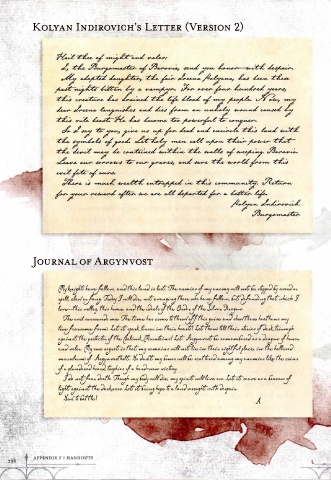 Kolyan Indirovich's Letter (Version 2)
Hail thee of might and valor:
I, the Burgomaster of Barovia, send you honor—with despair.
My adopted daughter, the fair Ireena Kolyana, has been these
past nights bitten by a vampyr. For over four hundred years,
this creature has drained the life blood of my people. Now, my
dear Ireena languishes and dies from an unholy wound caused by
this vile beast. He has become too powerful to conquer.
So I say to you, give us up for dead and encircle this land with
the symbols of good. Let holy men call upon their power that
the devil may be contained within the walls of weeping Barovia.
Leave our sorrows to our graves, and save the world from this
evil fate of ours.
There is much wealth entrapped in this community. Return
for your reward after we are all departed for a better life.
Kolyan Indirovich
Burgomaster
Journal of Argynvost
My knights have fallen, and this land is lost. The armies of my enemy will not be stopped by sword or
spell, claw or fang. Today I will die, not avenging those who have fallen, but defending that which I
love—this valley, this home, and the ideals of the Order of the Silver Dragon.
The evil surrounds me. The time has come to throw off this guise and show these heathens my
true
Let
My one regret is that my remains will not lie in their rightful place, in the hallowed
mausoleum of Argynvostholt. No doubt my bones will be scattered among my enemies like the coins
of a plundered hoard, trophies of a hard-won victory.
I do not fear death. Though my body will die, my spirit will live on. Let it serve as a beacon of
light against the darkness. Let it bring hope to a land wrought with despair.
Now, to battle!
A
APPENDIX F | HANDOUTS